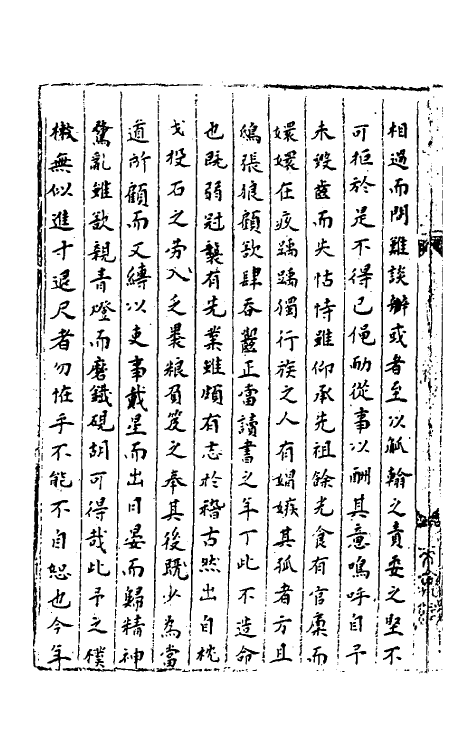 相過而問難談辦或者至以觚翰之責委之堅不
可拒於是不得已僶勉從事以酬其意嗚呼自予
未毀齒而失怙恃雖仰承先祖餘光食有官廪而
嬛嬛在疚踽踽獨行族之人有媢嫉其孤者方且
鴟張狼顧欲肆吞齧正當讀書之年丁此不造命
也既弱冠襲有先業雖頗有志於稽古然出自枕
戈投石之勞入乏褁粮負笈之奉其後既少為當
道所顧而又縛以吏事戴星而出日晏而歸精神
驚亂雖欲親青燈而磨鐵硯胡可得哉此予之樸
樕無似進寸退尺者勿怪乎不能不自恕也今年